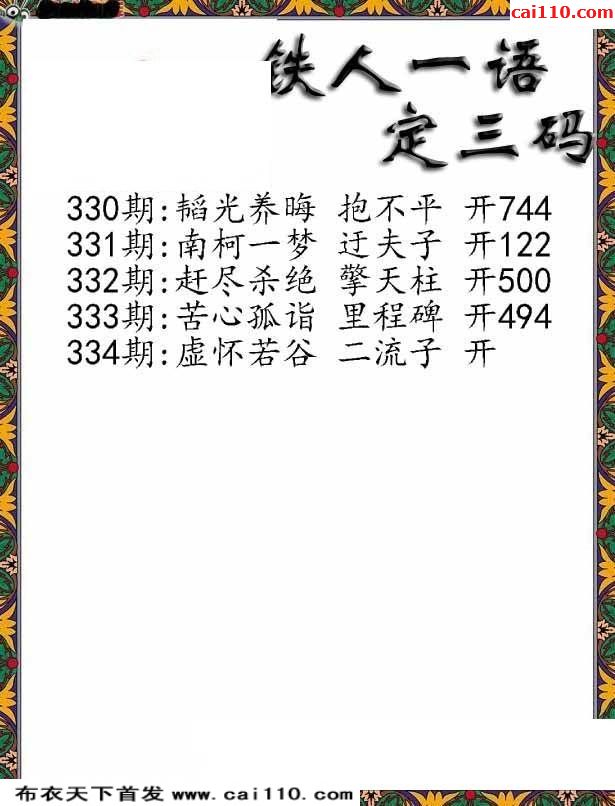 cai110.com
铁人一语
定三码
330期:韬光养晦 抱不平 开744
331期:南柯一梦 迂夫子 开122
332期:赶尽杀绝 擎天柱 开500
333期:苦心孤诣 里程碑 开494
334期:虚怀若谷 二流子 开
布衣天下首发 www.cai110.com